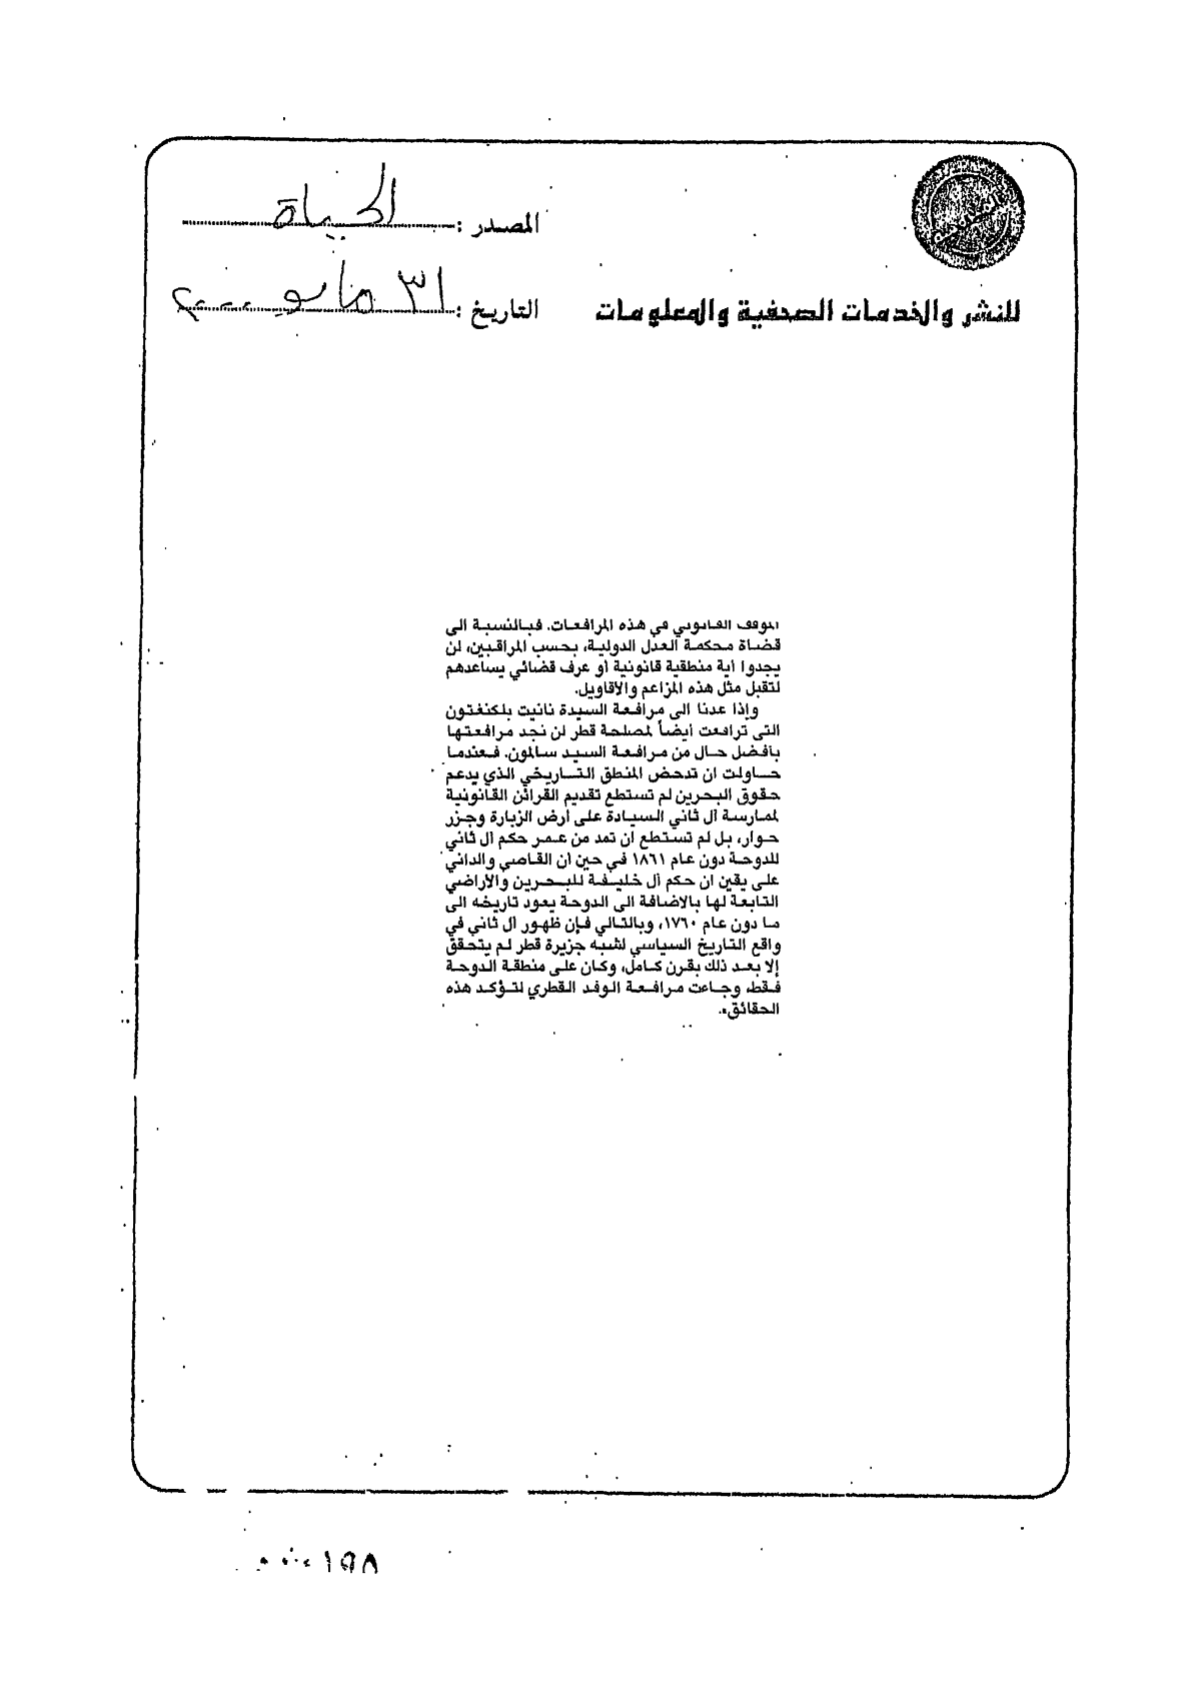 المصدر : الحياة
التاريخ : ٣١ مايو ٢٠٠٠
للنشر والخدمات الصحفية والمعلومات
الموقف القانوني في هذه المرافعات. فبالنسبة الى
قضاة محكمة العدل الدولية، بحسب المراقبين، لن
يجدوا أية منطقية قانونية أو عرف قضائي يساعدهم
لتقبل مثل هذه المزاعم والأقاويل.
وإذا عدنا الى مرافعة السيدة نانيت بلكنغتون
التي ترافعت أيضاً لمصلحة قطر لن نجد مرافعتها
بأفضل حال من مرافعة السيد سالمون. فعندما
حاولت ان تدحض المنطق التاريخي الذي يدعم
حقوق البحرين لم تستطع تقديم القرائن القانونية
لممارسة آل ثاني السيادة على أرض الزبارة وجزر
حوار، بل لم تستطع ان تمد من عمر حكم آل ثاني
للدوحة دون عام ١٨٦١ في حين أن القاصي والداني
على يقين ان حكم آل خليفة للبحرين والأراضي
التابعة لها بالاضافة الى الدوحة يعود تاريخه الى
ما دون عام ١٧٦٠، وبالتالي فإن ظهور آل ثاني في
واقع التاريخ السياسي لشبه جزيرة قطر لم يتحقق
إلا بعد ذلك بقرن كامل، وكان على منطقة الدوحة
فقط، وجاءت مرافعة الوفد القطري لتؤكد هذه
الحقائق».